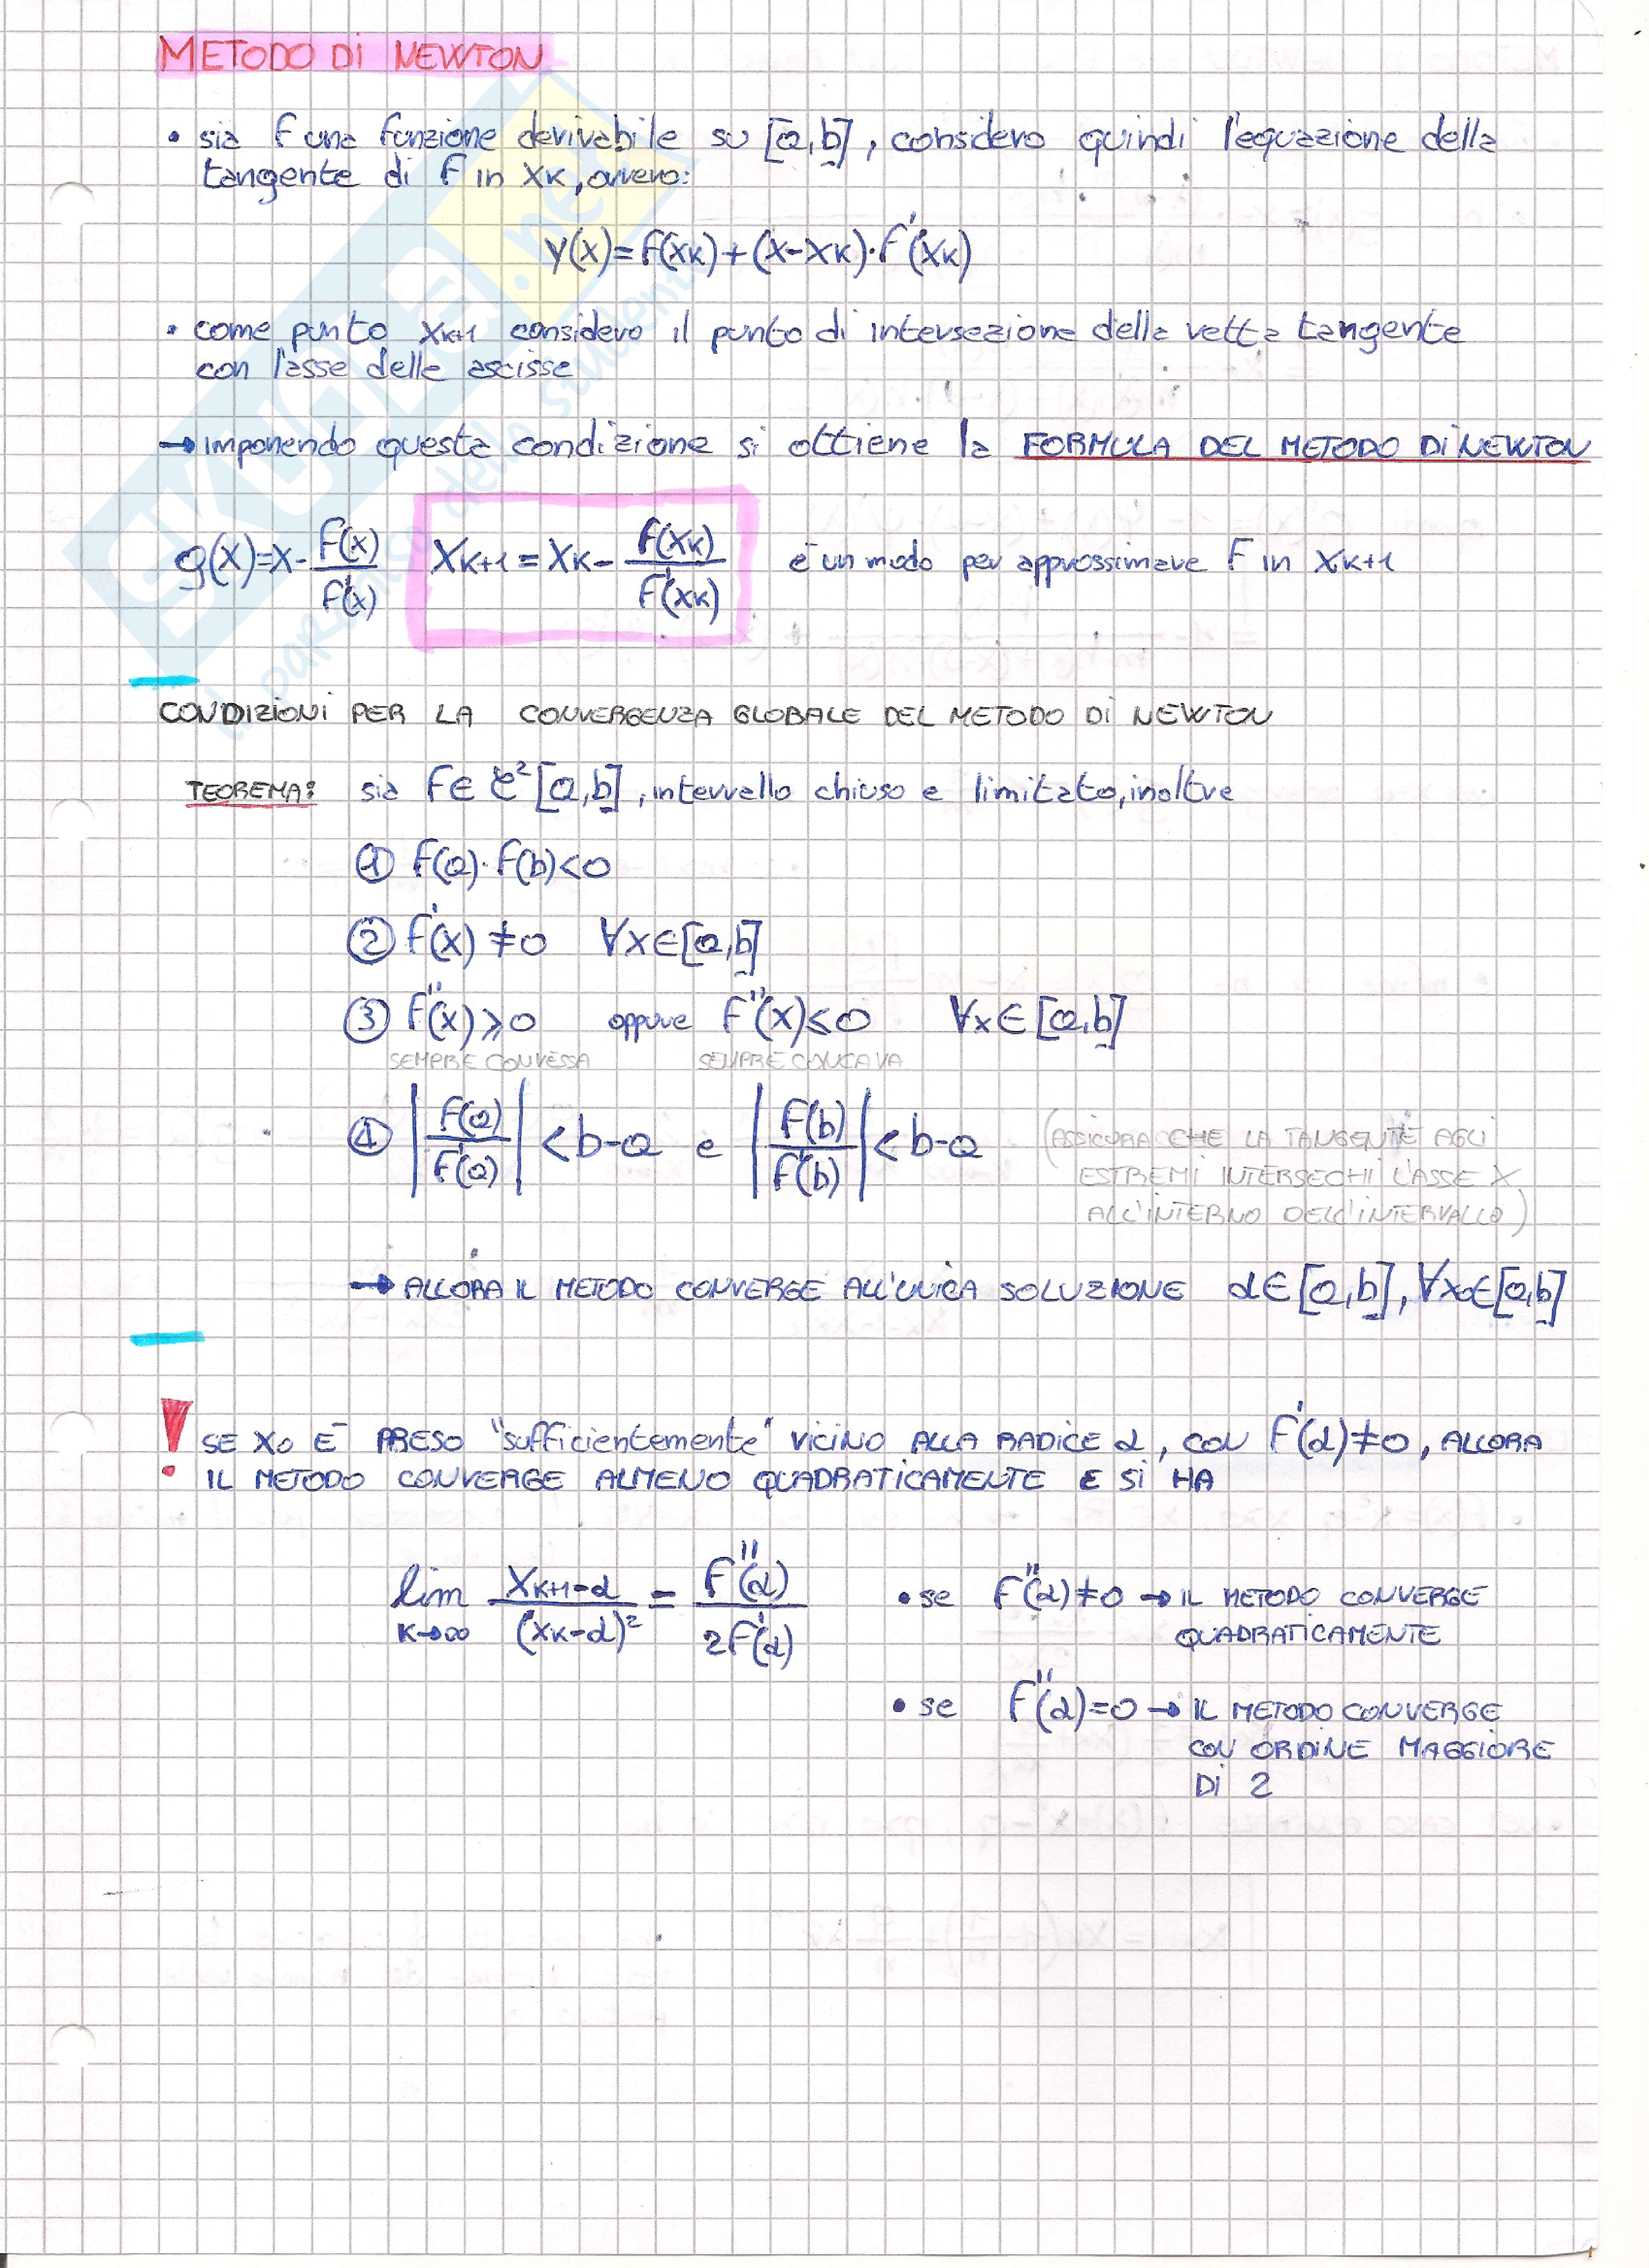 METODO DI NEWTON
• sia f una funzione derivabile su [a,b], considero quindi l'equazione della
tangente di f in xk, ovvero:
y(x)=f(xk)+(x-xk)·f'(xk)
• come punto xk+1 considero il punto di intersezione della retta tangente
con l'asse delle ascisse
→ imponendo questa condizione si ottiene la FORMULA DEL METODO DI NEWTON
g(x)=x-f(x)/f'(x) xk+1=xk-f(xk)/f'(xk) è un modo per approssimare f in xk+1
CONDIZIONI PER LA CONVERGENZA GLOBALE DEL METODO DI NEWTON
TEOREMA: sia f∈ C²[a,b], intervallo chiuso e limitato, inoltre
① f(a)·f(b)<0
② f'(x)≠0 ∀x∈[a,b]
③ f''(x)≥0 oppure f''(x)≤0 ∀x∈[a,b]
SEMPRE CONVESSA SEMPRE CONCAVA
④ |f(a)/f'(a)|<b-a e |f(b)/f'(b)|<b-a (ASSICURA CHE LA TANGENTE AGLI
ESTREMI INTERSECHI L'ASSE X
ALL'INTERNO DELL'INTERVALLO)
→ ALLORA IL METODO CONVERGE ALL'UNICA SOLUZIONE α∈[a,b], ∀x0∈[a,b]
! SE X0 È PRESO "sufficientemente" VICINO ALLA RADICE α, CON f'(α)≠0, ALLORA
IL METODO CONVERGE ALMENO QUADRATICAMENTE E SI HA
lim k→∞ (xk+1-α)/(xk-α)² = f''(α)/2f'(α) • se f''(α)≠0 → IL METODO CONVERGE
QUADRATICAMENTE
• se f''(α)=0 → IL METODO CONVERGE
CON ORDINE MAGGIORE
DI 2
SKUOLA.net
il paradiso dello studente
1